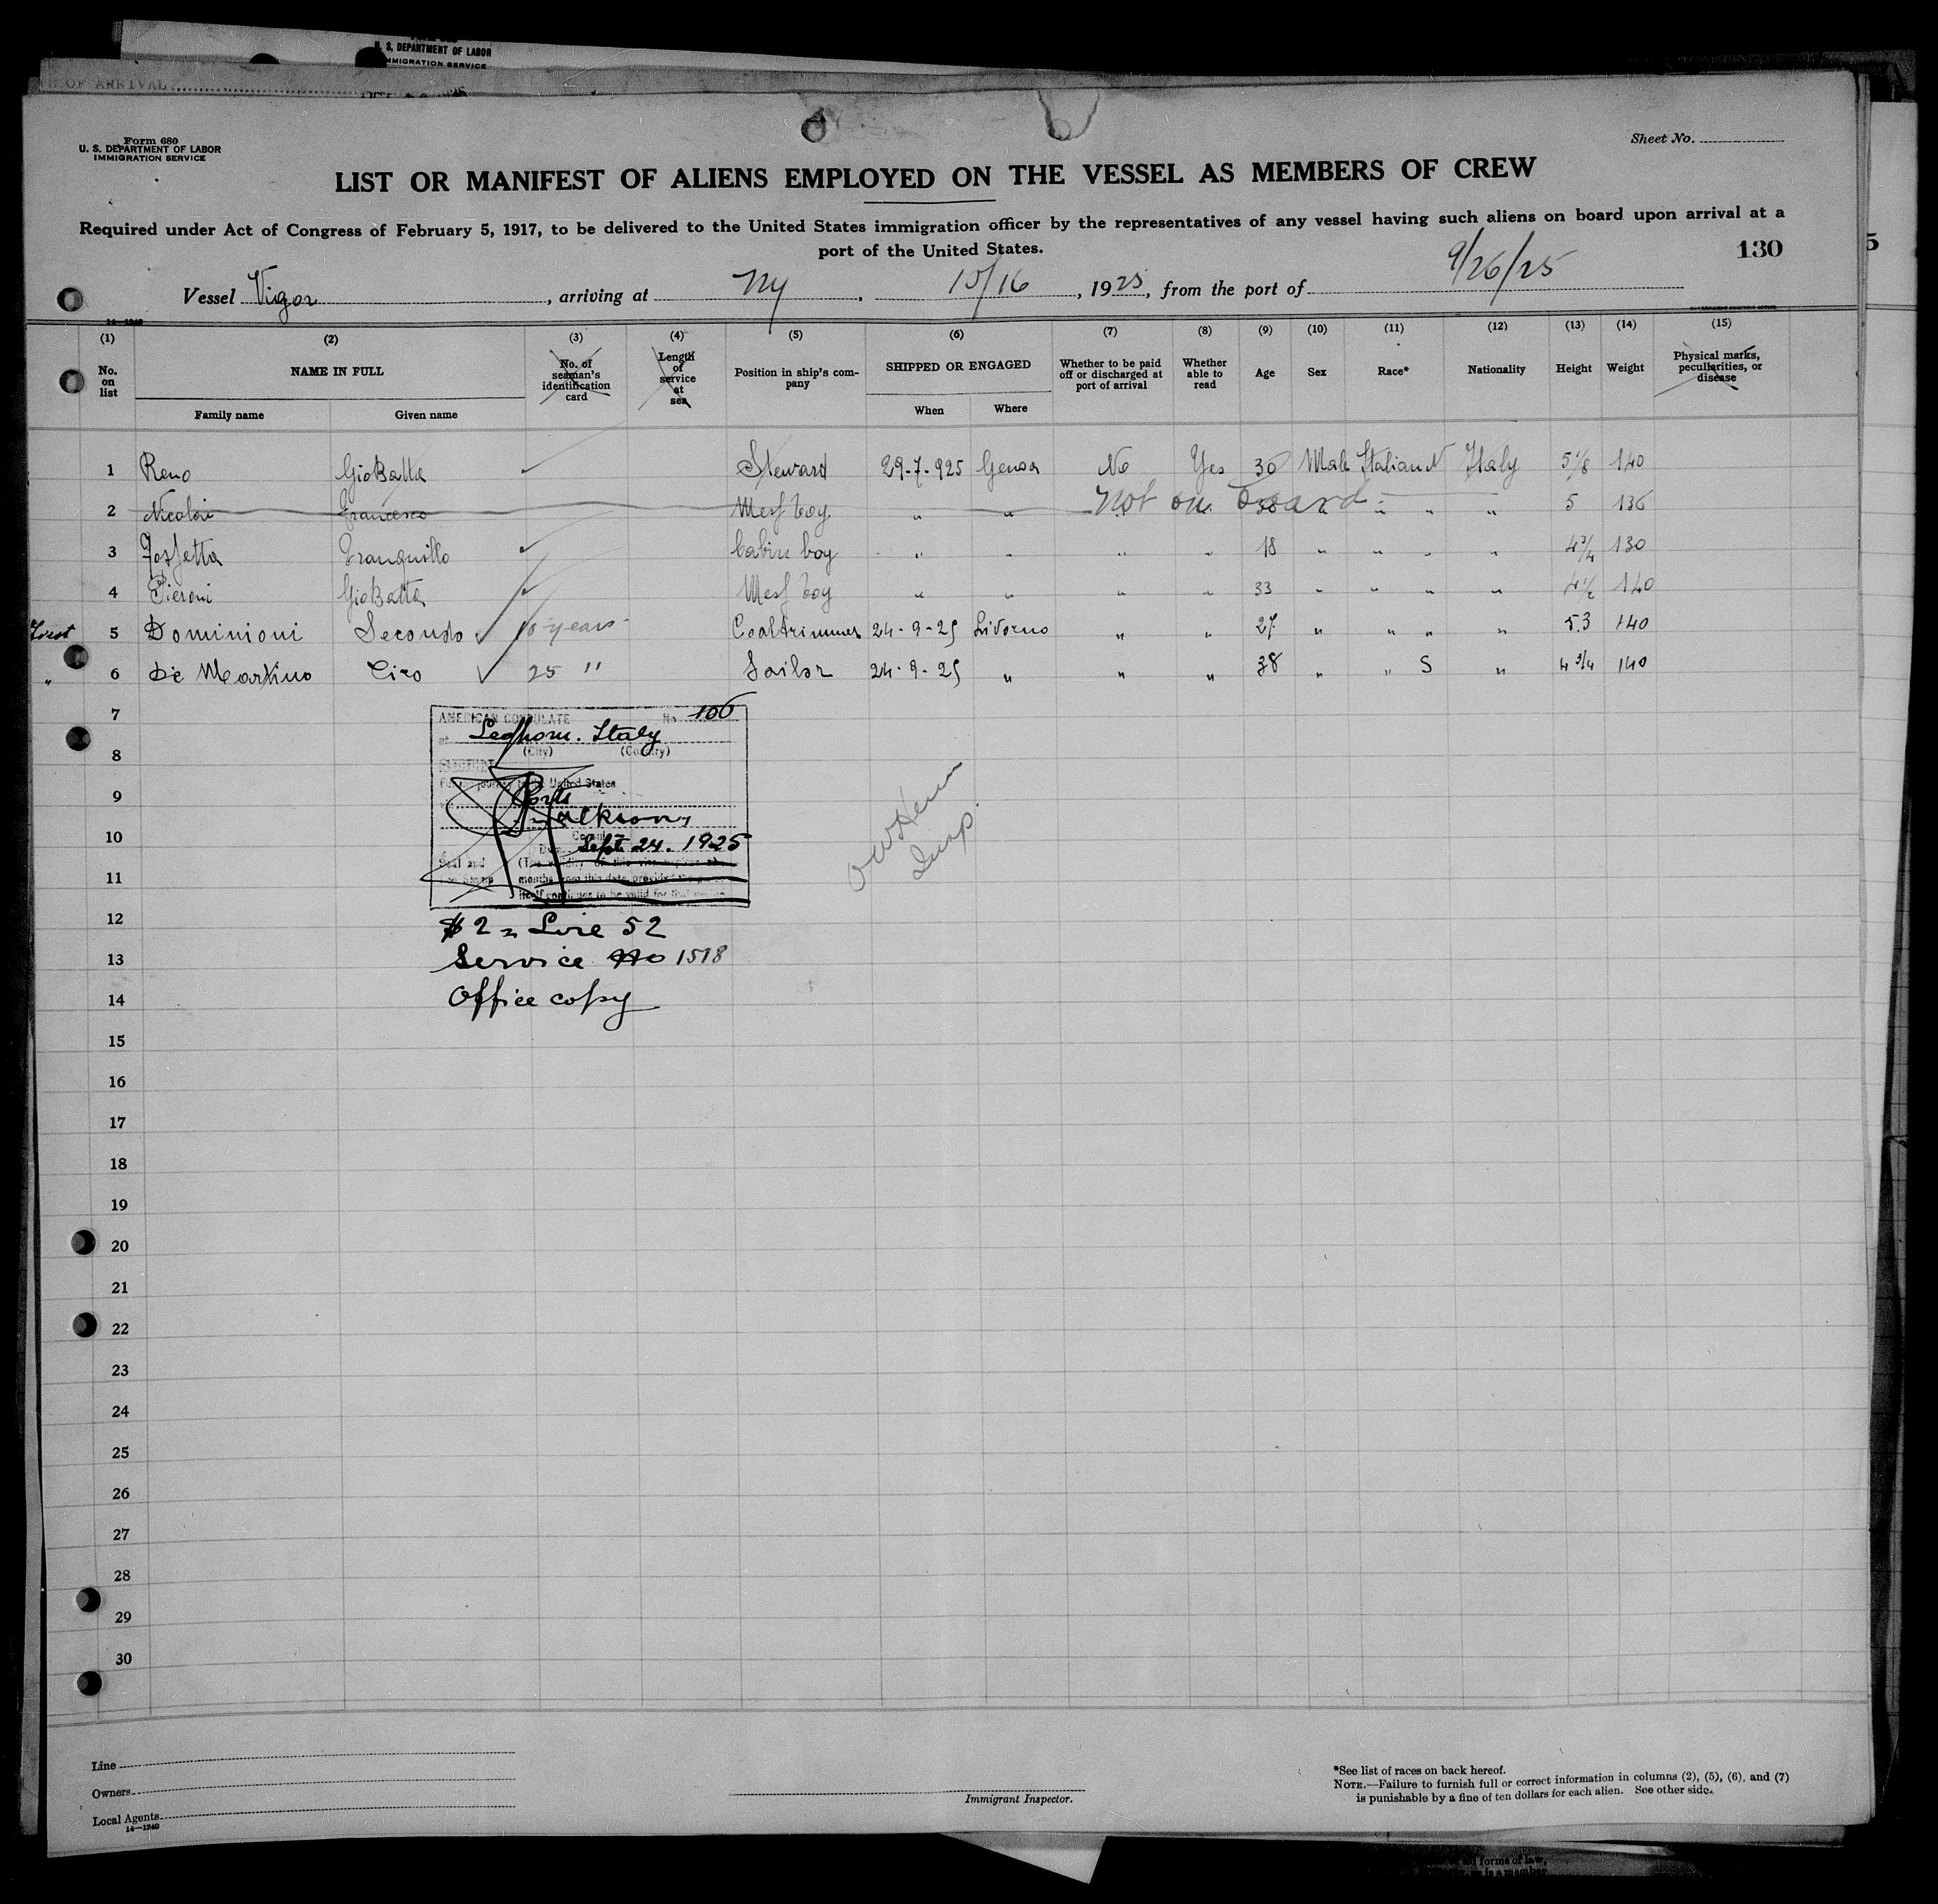 U. S. DEPARTMENT OF LABOR
IMMIGRATION SERVICE
OF ARRIVAL
Form 680
U. S. DEPARTMENT OF LABOR
IMMIGRATION SERVICE
Sheet No.
LIST OR MANIFEST OF ALIENS EMPLOYED ON THE VESSEL AS MEMBERS OF CREW
Required under Act of Congress of February 5, 1917, to be delivered to the United States immigration officer by the representatives of any vessel having such aliens on board upon arrival at a
port of the United States.
130
5
Vessel Vigor, arriving at NY, 10/16, 1925, from the port of 9/26/25
14—1240
(1) (2) (3) (4) (5) (6) (7) (8) (9) (10) (11) (12) (13) (14) (15)
No. on list NAME IN FULL No. of seaman's identification card Length of service at sea Position in ship's company SHIPPED OR ENGAGED Whether to be paid off or discharged at port of arrival Whether able to read Age Sex Race* Nationality Height Weight Physical marks, peculiarities, or disease
Family name Given name When Where
1 Reno GioBatta Steward 29-7-925 Genoa No Yes 30 Male Italian N Italy 5 1/8 140
2 Nicolai Francesco Mess boy " " Not on board " " " 5 136
3 Fossetta Tranquillo Cabin boy " " " " 18 " " " " 4 3/4 130
4 Pieroni GioBatta Mess boy " " " " 33 " " " " 4 1/2 140
First 5 Dominioni Secondo 10 years Coaltrimmer 24-9-25 Livorno " " 27 " " " " 5.3 140
" 6 De Martino Ciro 25 " Sailor 24-9-25 " " " 38 " " S " 4 3/4 140
7
AMERICAN CONSULATE No. 106
at Leghorn. Italy
8
(City) (Country)
United States
9
10
Sept 24. 1925
11
Seal and
months from this date provided the
12
$ 2 = Lire 52
13
Service No 1518
14
Office copy
Insp.
15
16
17
18
19
20
21
22
23
24
25
26
27
28
29
30
Line
Owners
Local Agents
14—1240
Immigrant Inspector.
*See list of races on back hereof.
NOTE.—Failure to furnish full or correct information in columns (2), (5), (6), and (7)
is punishable by a fine of ten dollars for each alien. See other side.
all forms of law,
is a member